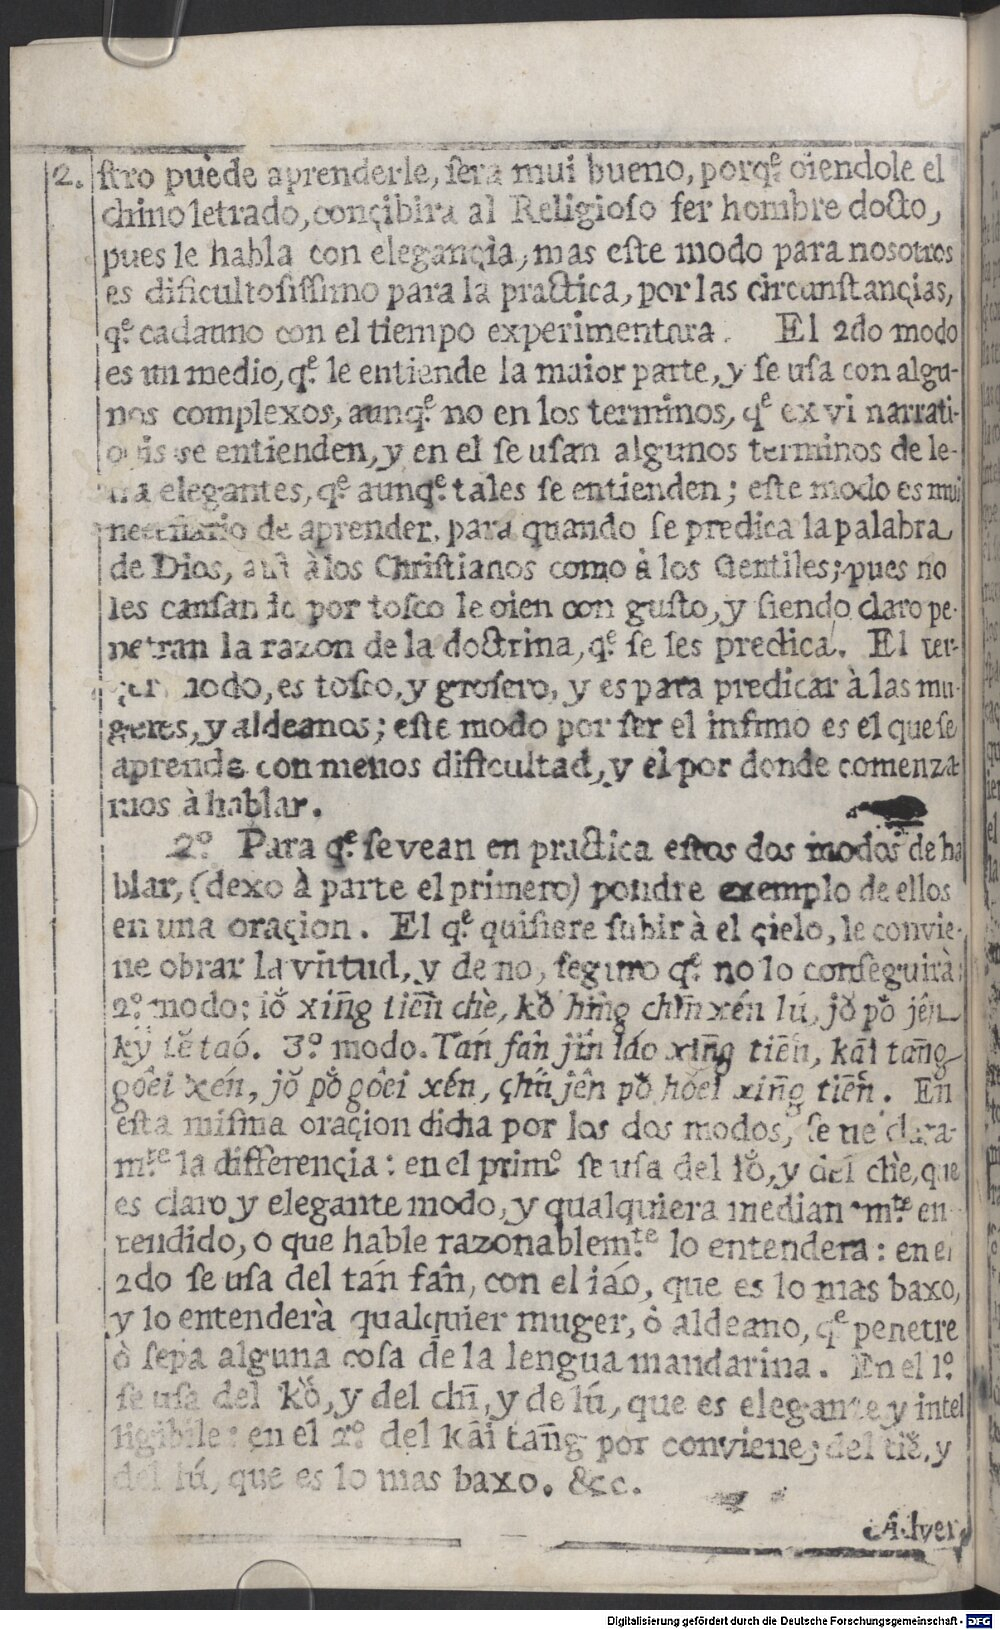 2. ſtro puede aprenderle, ſera mui bueno, porqͤ. oiendole el
chino letrado, conçibira al Religioſo ſer hombre docto,
pues le habla con elegançia, mas eſte modo para nosotros
es dificultoſiſſimo para la practica, por las circunſtançias,
qͤ. cadauno con el tiempo experimentara. El 2do modo
es un medio, qͤ. le entiende la maior parte, y ſe uſa con algu-
nos complexos, aunqͤ. no en los terminos, qͤ ex vi narrati-
onis se entienden, y en el ſe uſan algunos terminos de le-
tra elegantes, qͤ. aunqͤ. tales ſe entienden; eſte modo es mui
neceſſario de aprender, para quando ſe predica la palabra
de Dios, aſi à los Chriſtianos como à los Gentiles; pues no
les canſando por toſco le oien con guſto, y ſiendo claro pe-
netran la razon de la doctrina, qͤ. ſe les predica. El ter-
çer modo, es toſco, y groſero, y es para predicar à las mu-
geres, y aldeanos; eſte modo por ſer el infimo es el que ſe
aprende con menos dificultad, y el por donde comenza-
mos à hablar.
2º. Para qͤ. ſe vean en practica eſtos dos modos de ha
blar, (dexo à parte el primero) pondre exemplo de ellos
en una oraçion. El qͤ. quiſiere ſubir à el çielo, le convie-
ne obrar la virtud, y de no, ſeguro qͤ. no lo conſeguirà:
2º. modo: iǒ xiñg tiēn chè, kǒ hiñg chīn xén lú, jǒ pǒ jên
kỳ iě taó. 3º. modo. Tań fân jîn iáo xiñg tiēn, kāi tañg
goêi xén, jǒ pǒ goêi xén, çhíı jên pǒ hoěi xiñg tiēn. En
eſta miſma oraçion dicha por los dos modos, ſe ve clara-
mͭͤ. la differençia: en el primº. ſe uſa del iǒ, y del chè, que
es claro y elegante modo, y qualquiera medianamͭͤ. en-
tendido, o que hable razonablemͭͤ. lo entendera: en el
2do ſe uſa del tań fân, con el iáo, que es lo mas baxo,
y lo entenderà qualquier muger, ò aldeano, qͤ penetre
ò ſepa alguna coſa de la lengua mandarina. En el 1º.
ſe uſa del kǒ, y del chī, y de lú, que es elegante y intel
ligibile: en el 2º. del kāi tañg por conviene; del tiě, y
del lú, que es lo mas baxo. &c.
Adver
Digitalisierung gefördert durch die Deutsche Forschungsgemeinschaft - DFG